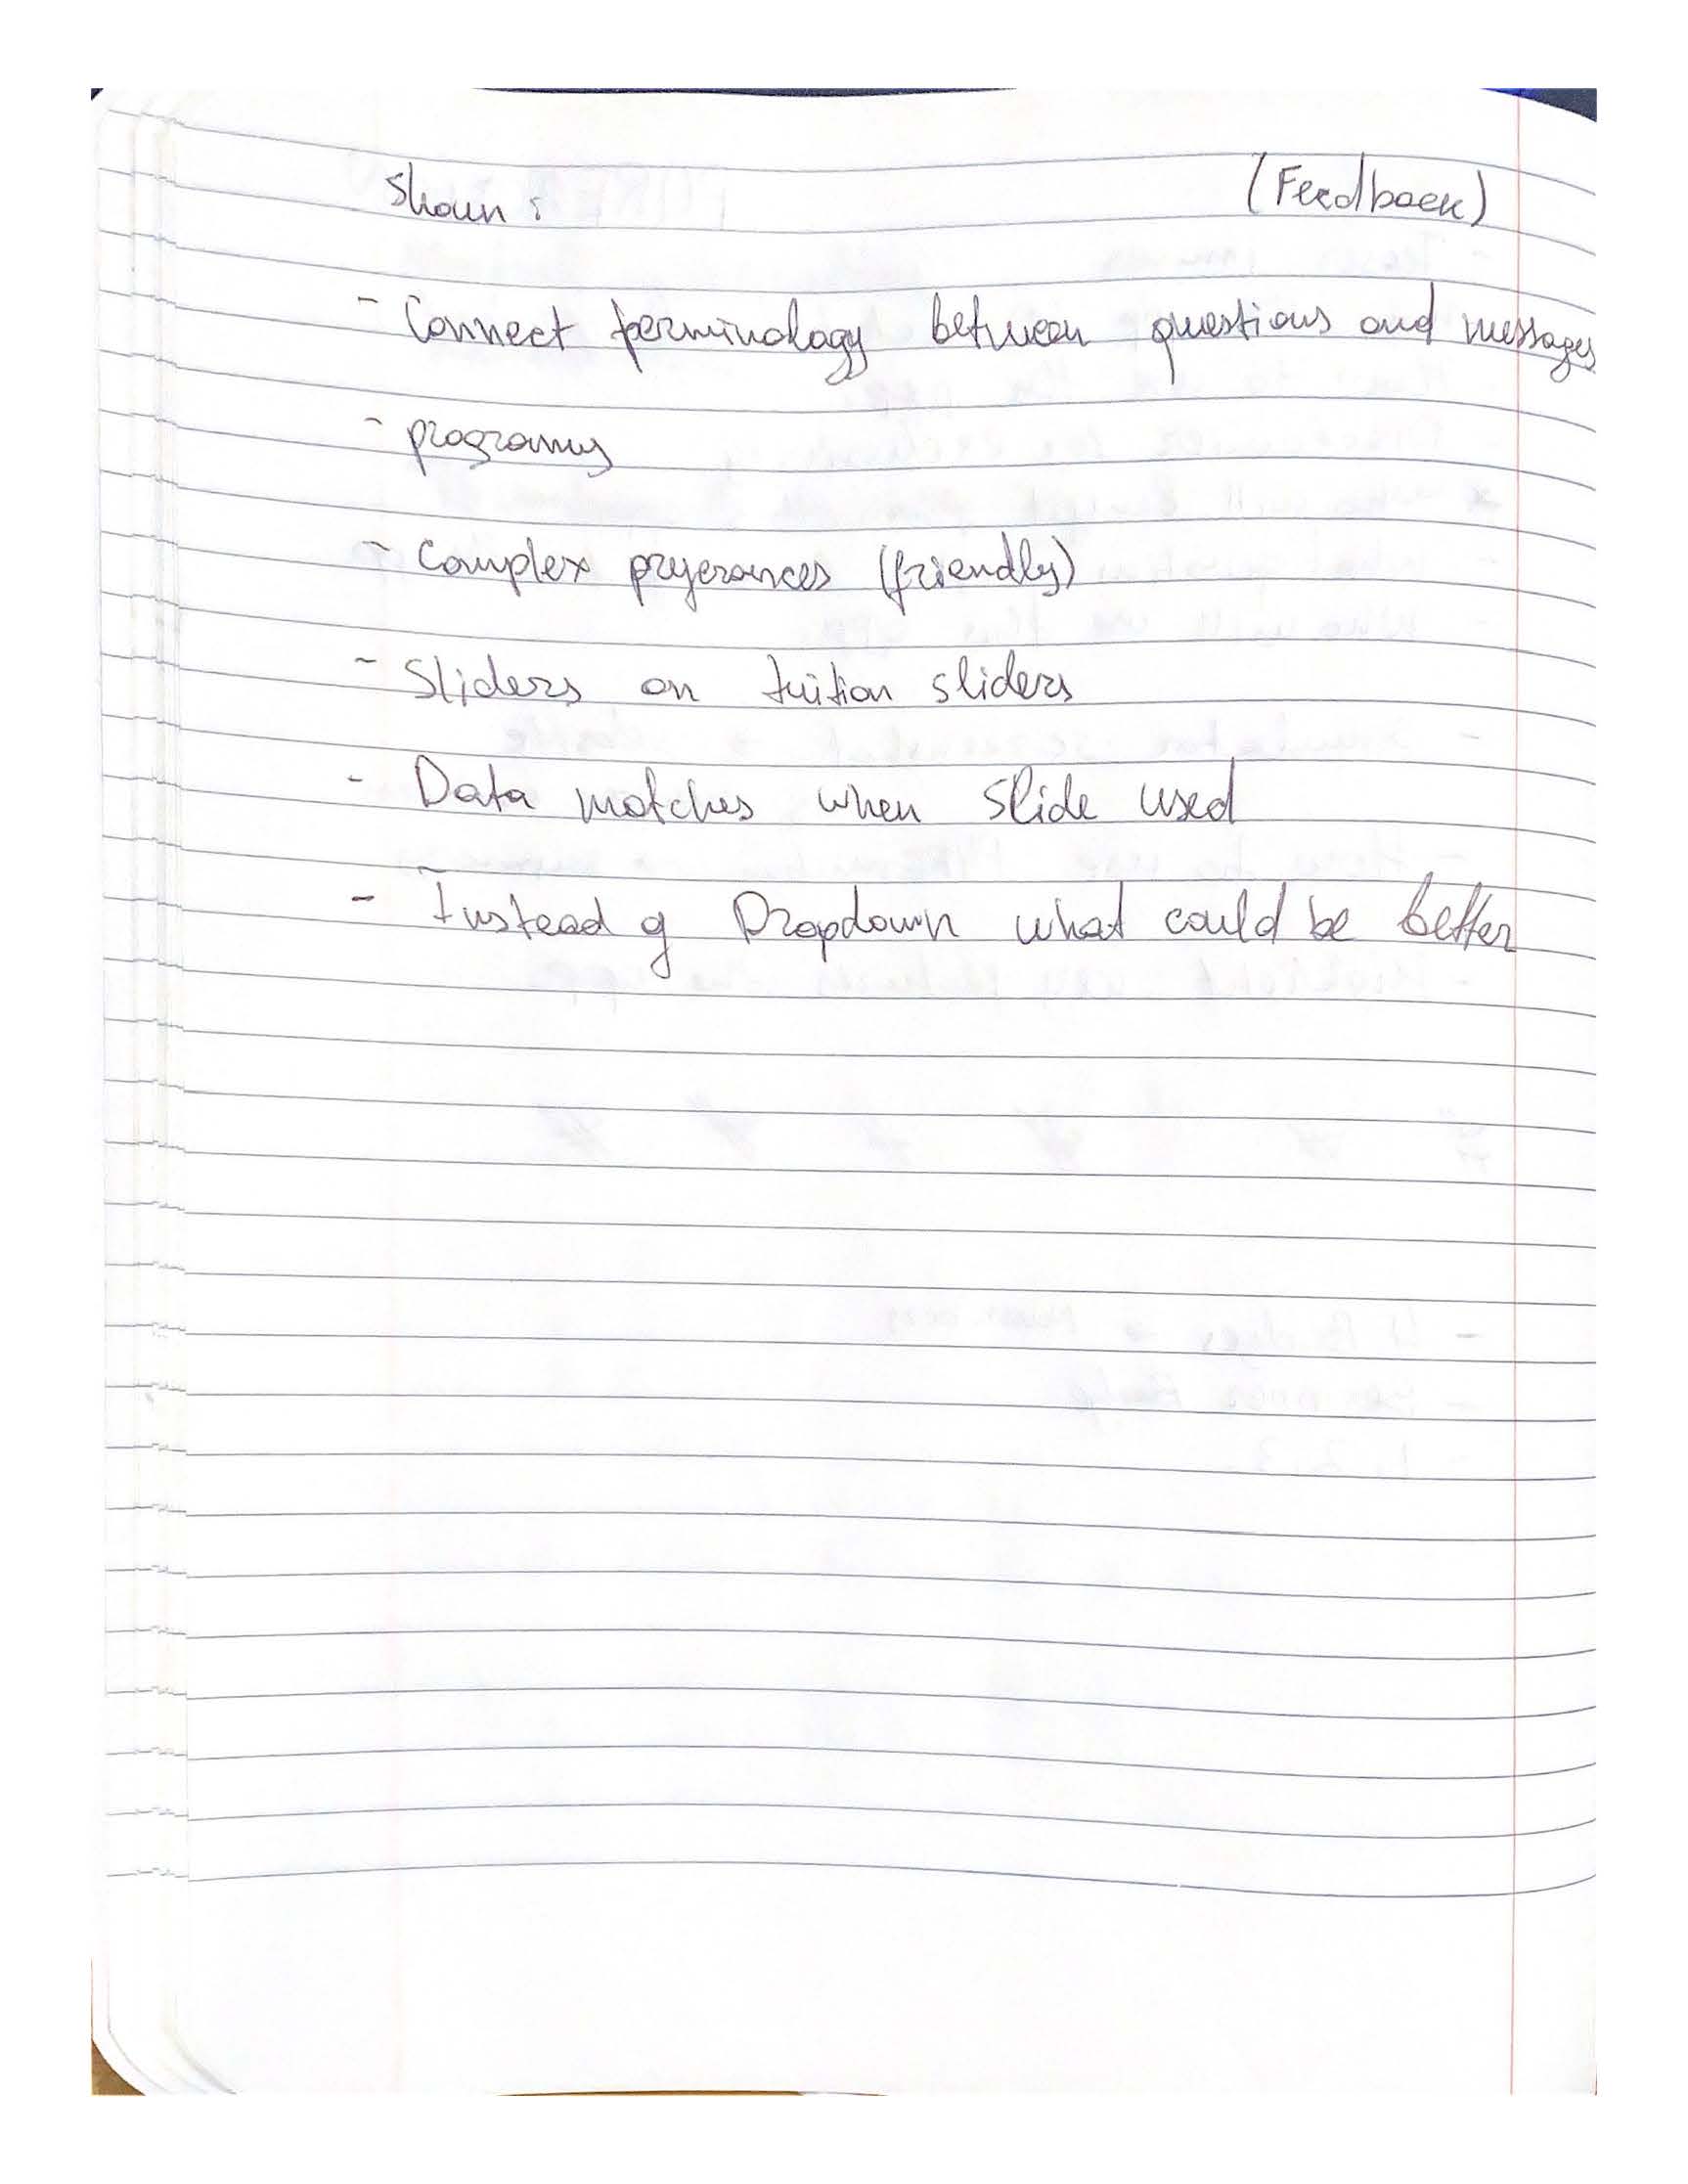 Shaun : (Feedback)
- Connect terminology between questions and messages
- programs
- Complex preferences (friendly)
- Sliders on tuition sliders
- Data matches when slide used
- Instead of Dropdown what could be better